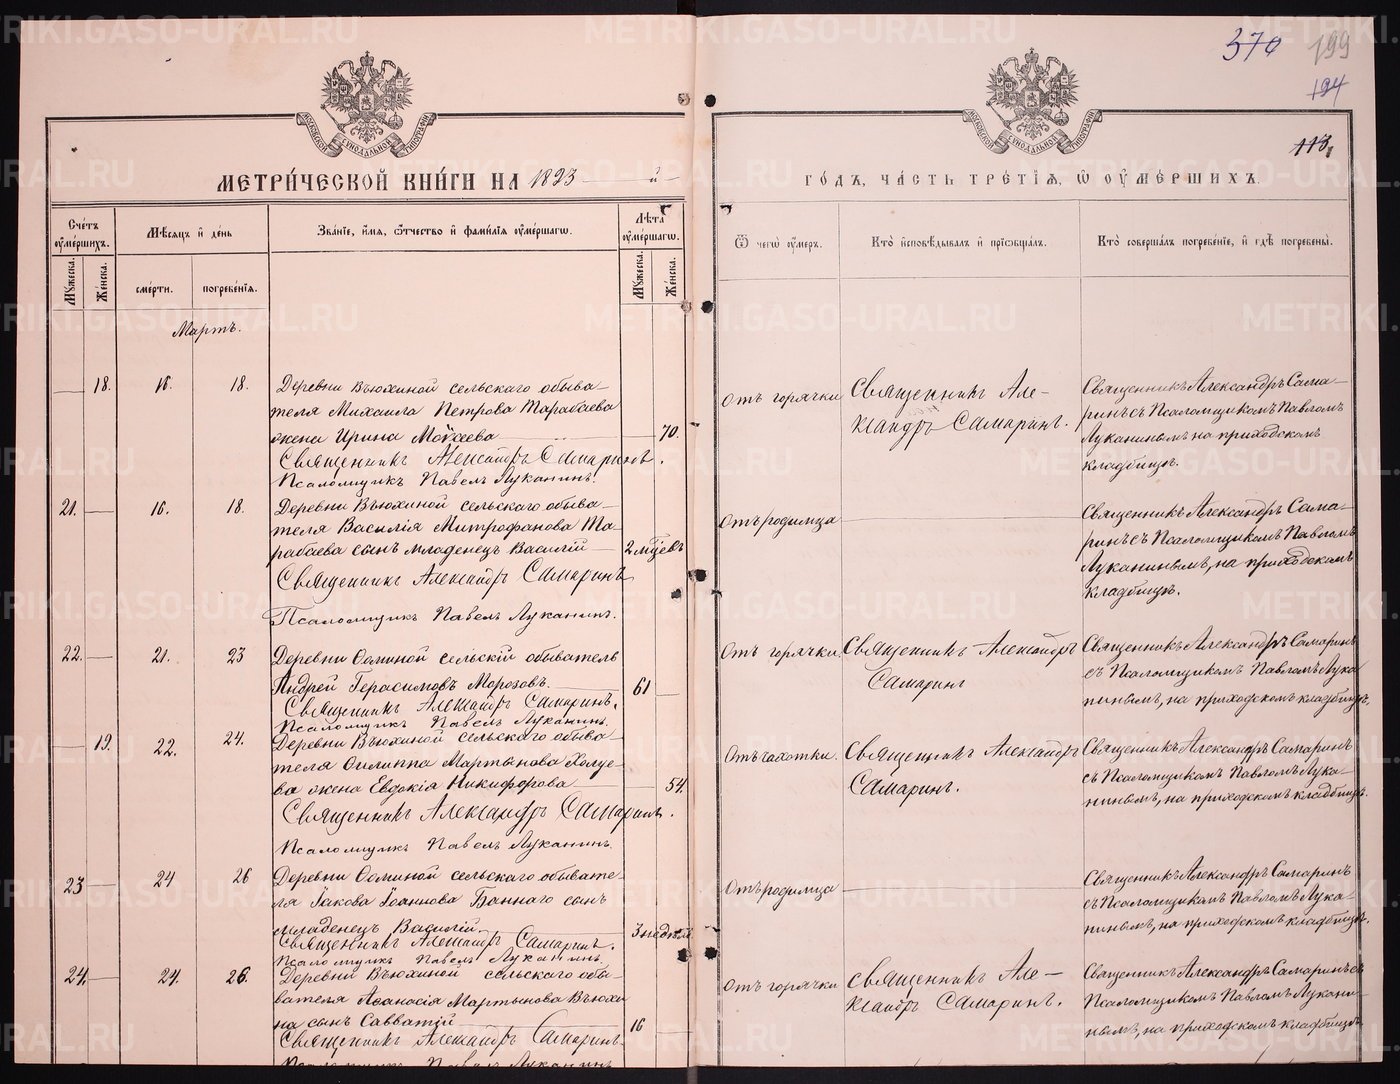 370 199
194
113
МЕТРИЧЕСКОЙ КНИГИ НА 1893 й
ГОДЪ, ЧАСТЬ ТРЕТІЯ, Ѿ ОУМЕРШИХЪ.
Счетъ оумершихъ.
Мѣсяцъ и день
Званіе, имя, ѿчество и фамилія оумершагѡ.
Лѣта оумершагѡ.
Ѿ чегѡ оумеръ.
Кто исповѣдывалъ и пріѡбщалъ.
Кто совершалъ погребеніе, и гдѣ погребены.
Мꙋжеска.
Женска.
смерти.
погребенія.
Мꙋжеска.
Женска.
Мартъ.
18. 16. 18. Деревни Вьюхиной сельскаго обыва-
теля Михаила Петрова Тарабаева
жена Ирина Мокѣева 70.
Священникъ Александръ Самаринъ.
Псаломщикъ Павелъ Луканинъ.
Отъ горячки
Священникъ Але-
ксандръ Самаринъ.
Священникъ Александръ Сама-
ринъ съ Псаломщикомъ Павломъ
Луканинымъ на приходскомъ
кладбищѣ.
21. 16. 18. Деревни Вьюхиной сельскаго обыва-
теля Василія Митрофанова Та-
рабаева сынъ младенецъ Василій 2 мѣсяцевъ
Священникъ Александръ Самаринъ
Псаломщикъ Павелъ Луканинъ.
Отъ родимца
Священникъ Александръ Сама-
ринъ съ Псаломщикомъ Павломъ
Луканинымъ, на приходскомъ
кладбищѣ.
22. 21. 23 Деревни Ѳоминой сельскій обыватель
Андрей Герасимовъ Морозовъ. 61
Священникъ Александръ Самаринъ.
Псаломщикъ Павелъ Луканинъ.
Отъ горячки.
Священникъ Александръ
Самаринъ
Священникъ Александръ Самаринъ
съ Псаломщикомъ Павломъ Лука-
нинымъ, на приходскомъ кладбищѣ.
19. 22. 24. Деревни Вьюхиной сельскаго обыва-
теля Филиппа Мартынова Холуе-
ва жена Евдокія Никифорова 54.
Священникъ Александръ Самаринъ.
Псаломщикъ Павелъ Луканинъ.
Отъ чахотки.
Священникъ Александръ
Самаринъ.
Священникъ Александръ Самаринъ
съ Псаломщикомъ Павломъ Лука-
нинымъ, на приходскомъ кладбищѣ.
23 24 26 Деревни Ѳоминой сельскаго обывате-
ля Іакова Іоаннова Баннаго сынъ
младенецъ Василій. 3 недѣль
Священникъ Александръ Самаринъ.
Псаломщикъ Павелъ Луканинъ.
Отъ родимца
Священникъ Александръ Самаринъ
съ Псаломщикомъ Павломъ Лука-
нинымъ, на приходскомъ кладбищѣ.
24. 24. 26. Деревни Вьюхиной сельскаго обы-
вателя Аѳанасія Мартынова Вьюхи-
на сынъ Савватій 16
Священникъ Александръ Самаринъ.
Псаломщикъ Павелъ Луканинъ
Отъ горячки
Священникъ Але-
ксандръ Самаринъ.
Священникъ Александръ Самаринъ съ
Псаломщикомъ Павломъ Лукани-
нымъ, на приходскомъ кладбищѣ
METRIKI.GASO-URAL.RU